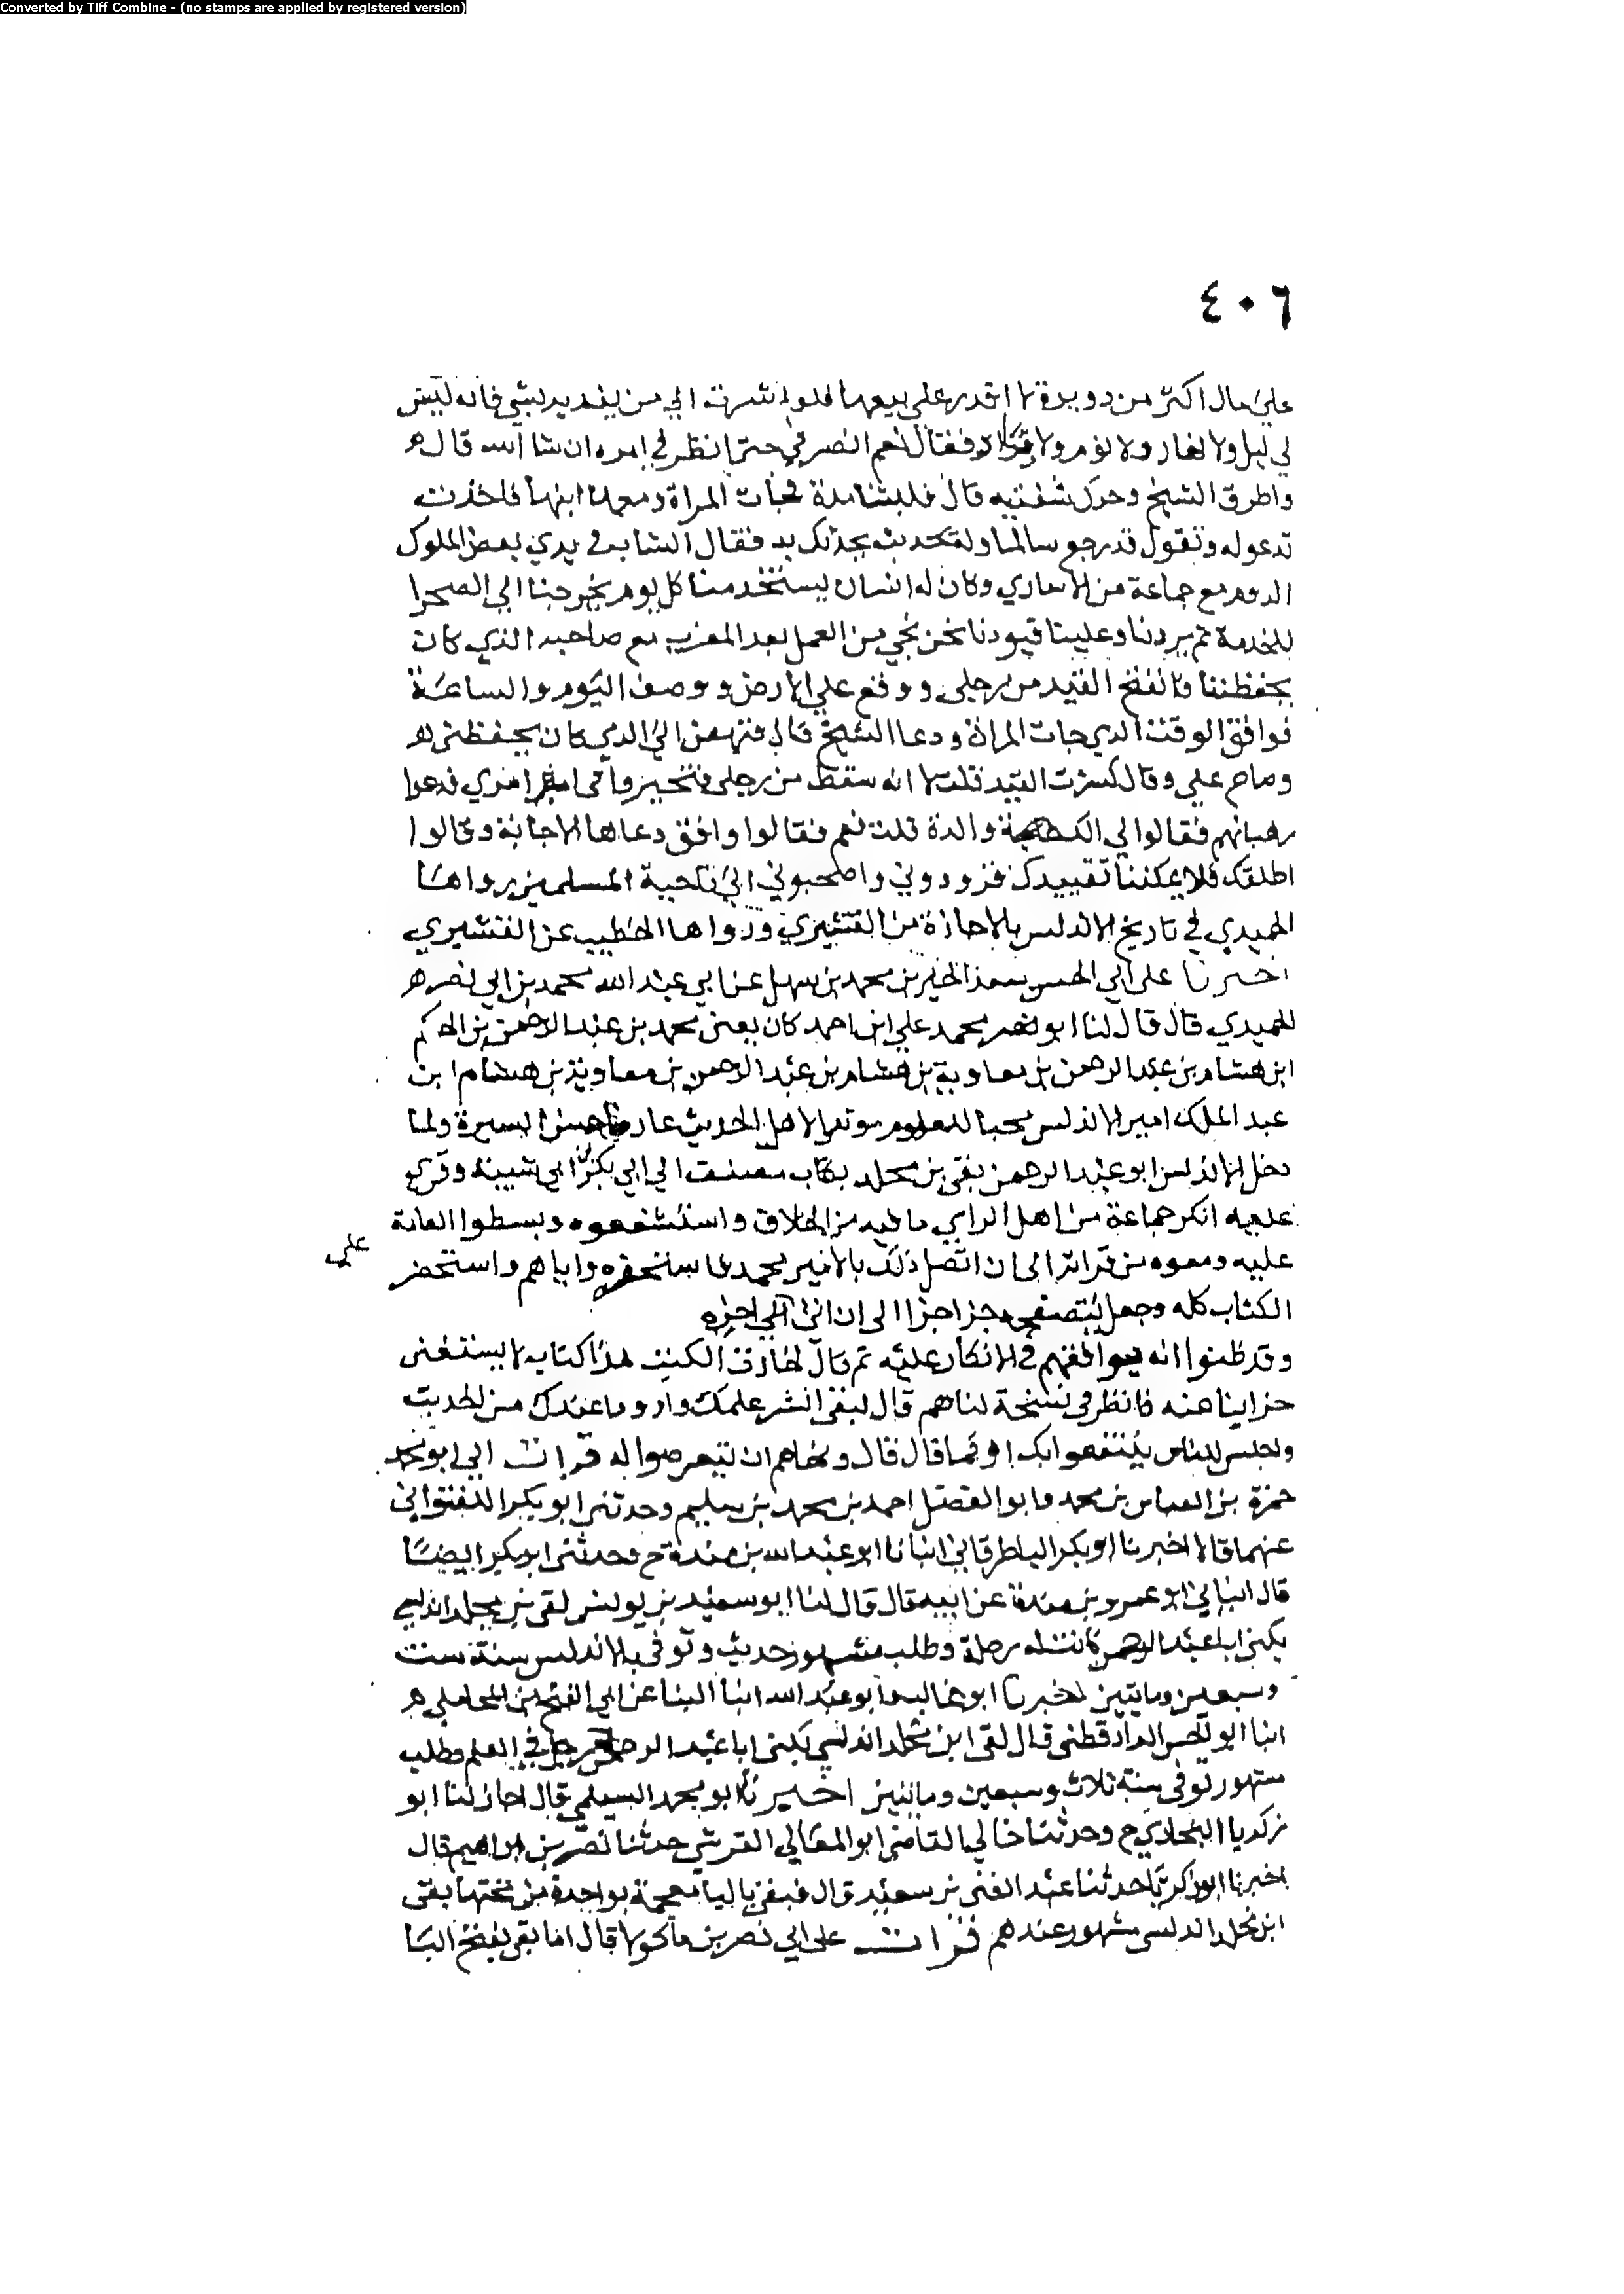 Converted by Tiff Combine - (no stamps are applied by registered version)
٤٠٦
على مال اكثر من دويرة لا اقدر على بيعها فلو اشرت الي من يفديه بشي فانه ليس
لي ليل ولا نهار ولا نوم ولا قرار فقال نعم انصرفي حتى انظر في امره ان شا الله قال
واطرق الشيخ وحرك شفتيه قال فلبثنا مدة فجات المراة ومعها ابنها فاخذت
تدعوله وتقول قد رجع سالما وله حديث يحدثك به فقال الشاب في يدي بعض الملوك
الروم مع جماعة من الاساري وكان له انسان يستخدمنا كل يوم يخرجنا الي الصحرا
للخدمة ثم يردنا وعلينا قيودنا نحن نجي من العمل بعد المغرب مع صاحبه الذي كان
يحفظننا فانفتح القيد من رجلي ووقع علي الارض ووصف اليوم والساعة
فوافق الوقت الذي جات المراة ودعا الشيخ قال فنهض الي الذي كان يحفظني
وصاح علي وقال كسرت القيد قلت لا انه سقط من رجلي فتحير واخبر امري فدعوا
رهبانهم فقالوا لي الك والدة قلت نعم فقالوا وافق دعاها الاجابة وقالوا
اطلقك فلا يمكننا تقييدك فزودوني واصحبوني الي ناحية المسلمين رواها
الحميدي في تاريخ الاندلس بالاجازة من القشيري ورواها الخطيب عن القشيري
اخبرنا على ابي الحسن سعد الخير بن محمد بن سهل عن ابي عبد الله محمد بن ابي نصر
الحميدي قال قال لنا ابو محمد علي ابن احمد كان يعني محمد بن عبد الرحمن بن الحكم
ابن هشام بن عبد الرحمن بن معاوية بن هشام بن عبد الرحمن بن معاوية بن هشام ابن
عبد الملك امير الاندلس محبا للعلوم موثرا لاهل الحديث عارفا حسن السيرة ولما
دخل الاندلس ابو عبد الرحمن بقي بن مخلد بكتاب مصنف ابي بكر بن ابي شيبة وقري
عليه انكر جماعة من اهل الراي ما فيه من الخلاف واستشنعوه وبسطوا العامة
على
عليه ومنعوه من قراته الى ان اتصل ذلك بالامير محمد فاستحضره واياهم واستحضر
الكتاب كله وجعل يتصفحه جزا جزا الى ان اتى الي اخره
وقد ظنوا انه يوافقهم في الانكار عليه ثم قال لخازن الكتب هذا كتاب لا يستغني
خزايننا عنه فانظر في نسخة لنا ثم قال لبقي انشر علمك وارو ما عندك من الحديث
واجلس للناس ينتفعوا بك او كما قال قال ونهاهم ان يتعرضوا له قرات ابي ابو محمد
حمزة بن العباس بن محمد وابو الفضل احمد بن محمد بن سليم وحدثني ابو بكر اللفتواني
عنهما قالا اخبرنا ابو بكر الباطرقاني انبانا ابو عبد الله بن مندة ح وحدثني ابو بكر ايضا
قال انباني ابو عمرو بن مندة عن ابيه قال قال لنا ابو سعيد بن يونس بقي بن مخلد اندلسي
يكنى ابا عبد الرحمن كانت له رحلة وطلب مشهور حديث وتوفي بالاندلس سنة ست
وسبعين ومايتين اخبرنا ابو غالب وابو عبد الله ابنا البنا عن ابي الفتح بن المحاملي
انبا ابو الحسن الدارقطني قال بقي ابن مخلد اندلسي يكنى ابا عبد الرحمن في العلم وطلب
مشهور توفي سنة ثلاث وسبعين ومايتين اخبرنا ابو محمد السلمي قال اجاز لنا ابو
زكريا البخاري ح وحدثنا خالي القاضي ابو المعالي القرشي حدثنا نصر بن ابراهيم قال
اخبرنا ابو زكريا حدثنا عبد الغني بن سعيد قال فبقي باليا معجمة بواحدة من تحتها بقي
ابن مخلد اندلسي مشهور عندهم قرات على ابي نصر بن ماكولا قال اما بقي بفتح البا